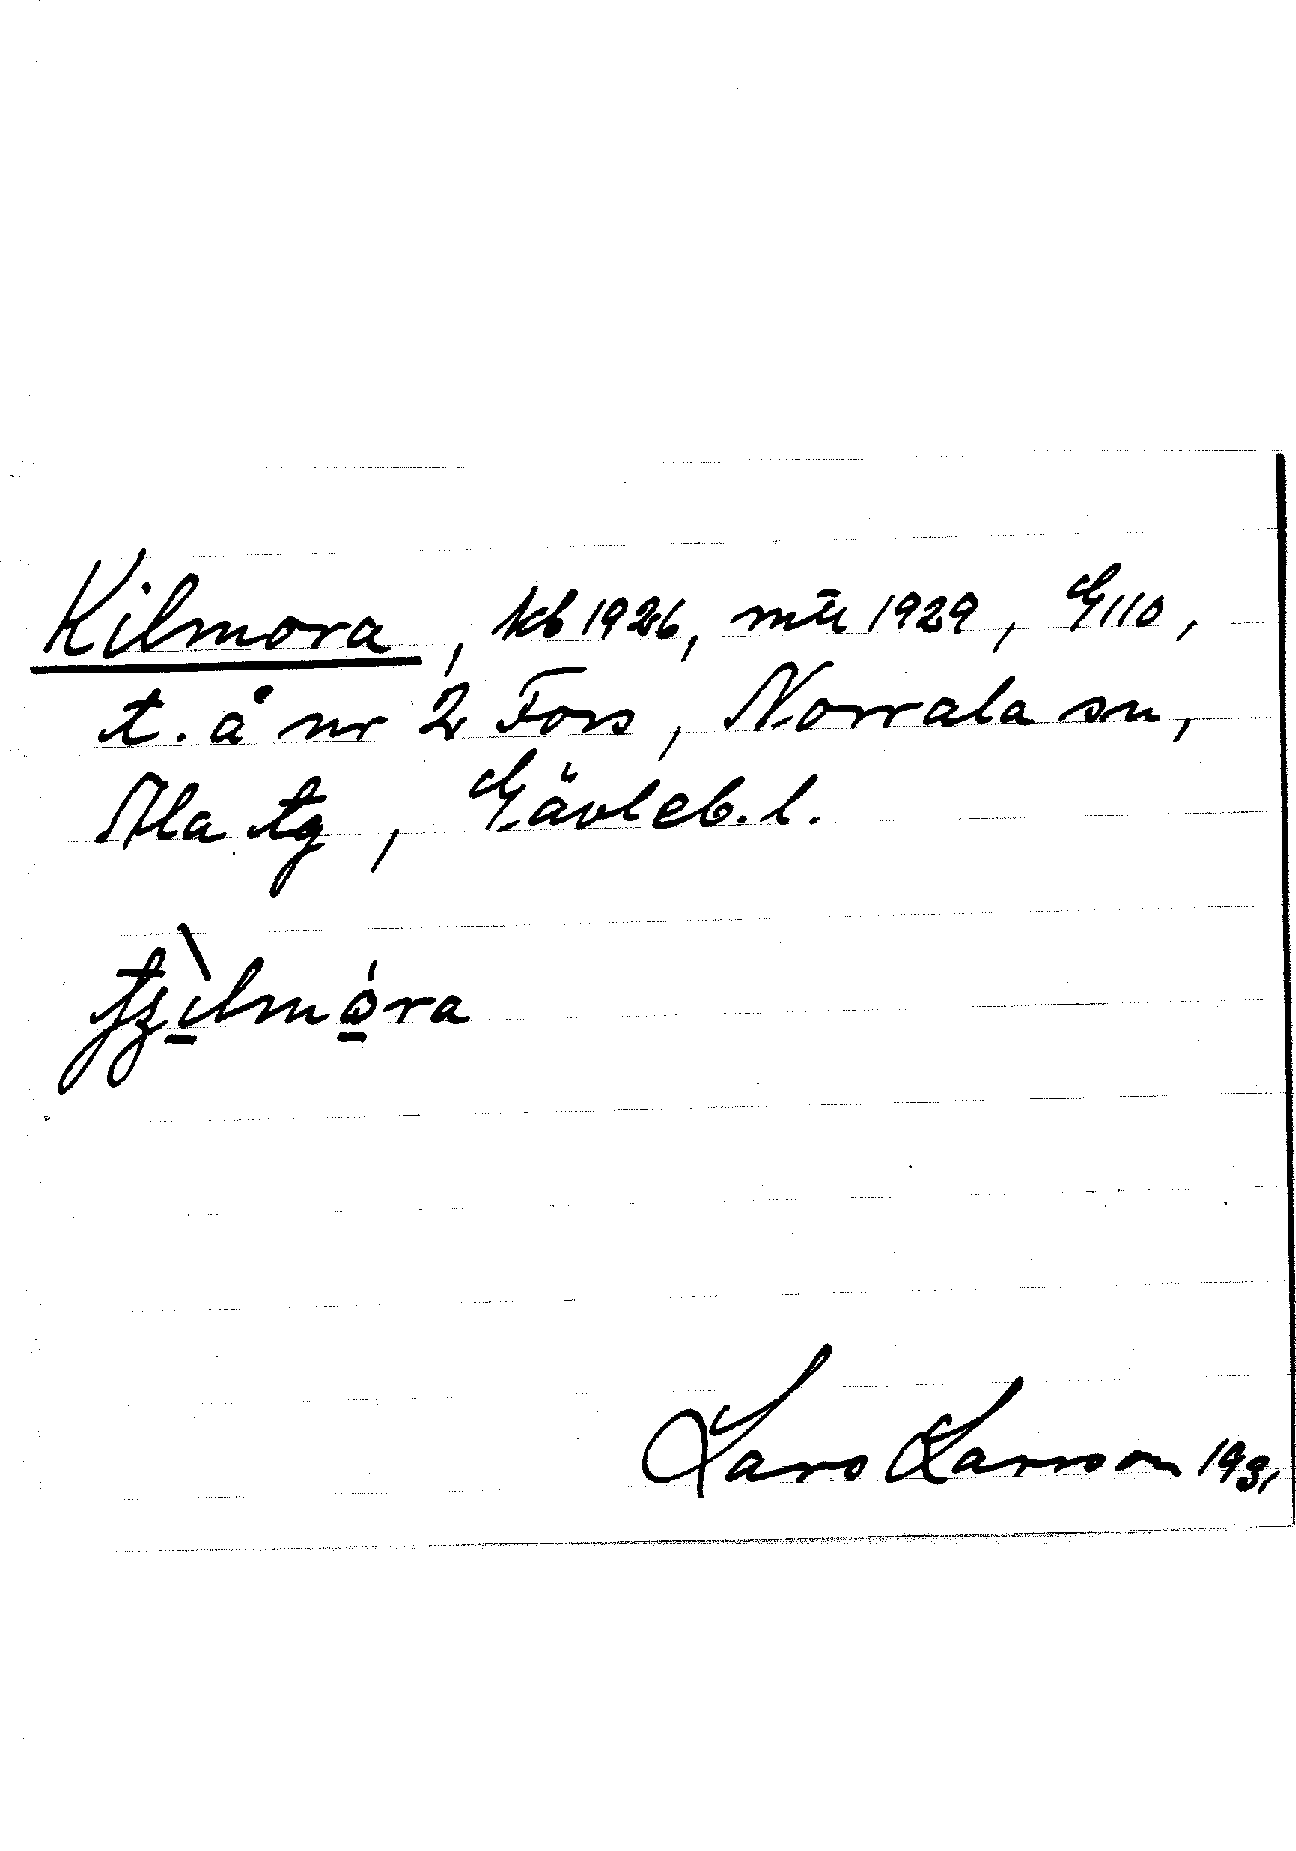 Kilmora, kb 1926, mtl 1929, G110,
t. å nr 2 Fors, Norrala sn,
Ala tg, Gävleb. l.
Lars Larsson 1931